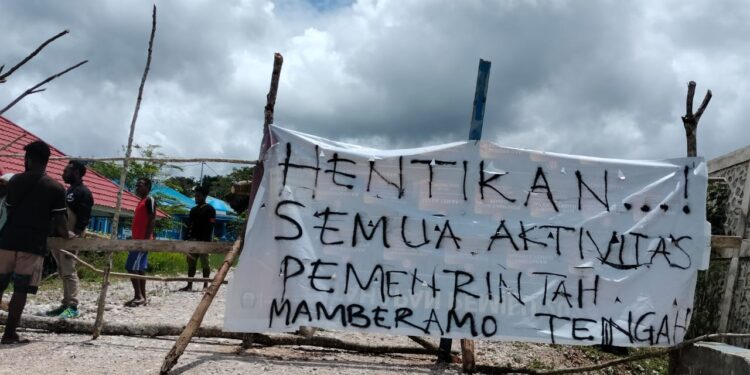 HENTIKAN...!
SEMUA AKTIVITAS
PEMEHRINTAH.
MAMBERAMO TENGAH